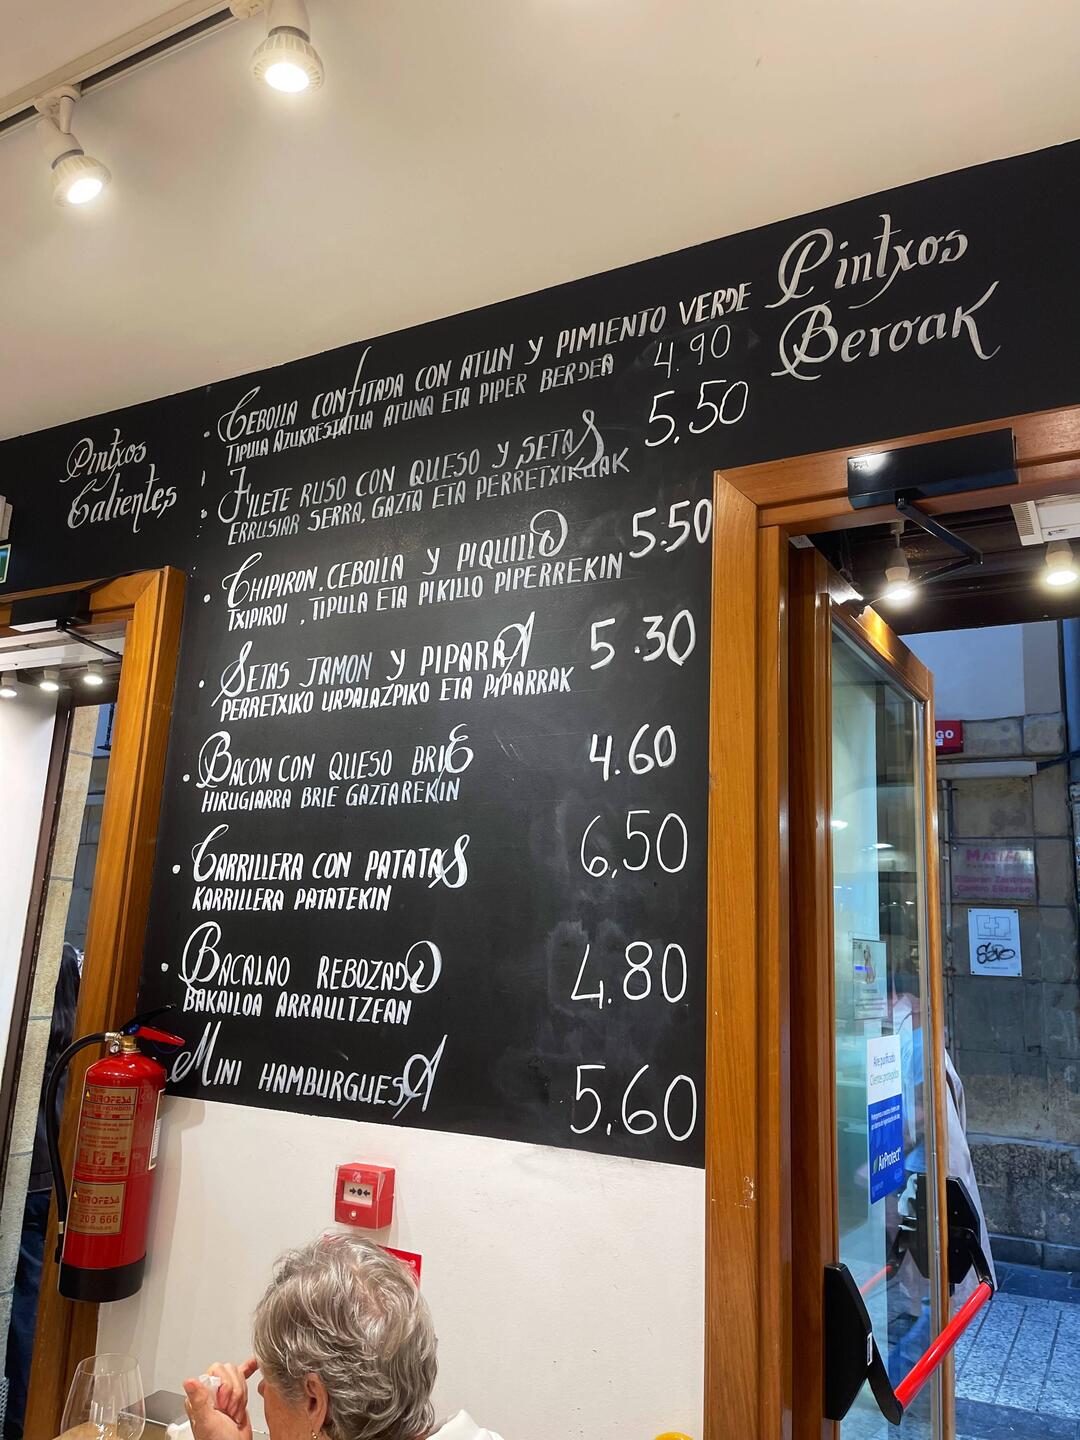 Pintxos
Calientes
Pintxos
Beroak
CEBOLLA CONFITADA CON ATUN Y PIMIENTO VERDE
TIPULA AZUKRESTATUA ATUNA ETA PIPER BERDEA 4.90
FILETE RUSO CON QUESO Y SETAS 5,50
ERRUSIAR SERRA, GAZTA ETA PERRETXIKUAK
CHIPIRON, CEBOLLA Y PIQUILLO 5.50
TXIPIROI , TIPULA ETA PIKILLO PIPERREKIN
SETAS JAMON Y PIPARRA 5.30
PERRETXIKO URDALAZPIKO ETA PIPARRAK
BACON CON QUESO BRIE 4.60
HIRUGIARRA BRIE GAZTAREKIN
CARRILLERA CON PATATAS 6,50
KARRILLERA PATATEKIN
BACALAO REBOZADO 4.80
BAKAILOA ARRAULTZEAN
MINI HAMBURGUESA 5,60
EUROFESA
EUROFESA
209 666
GO
MATIA
Elizaran Zentroa
Centro Elizaran
Aire purificado
Clientes protegidos
AirProtect